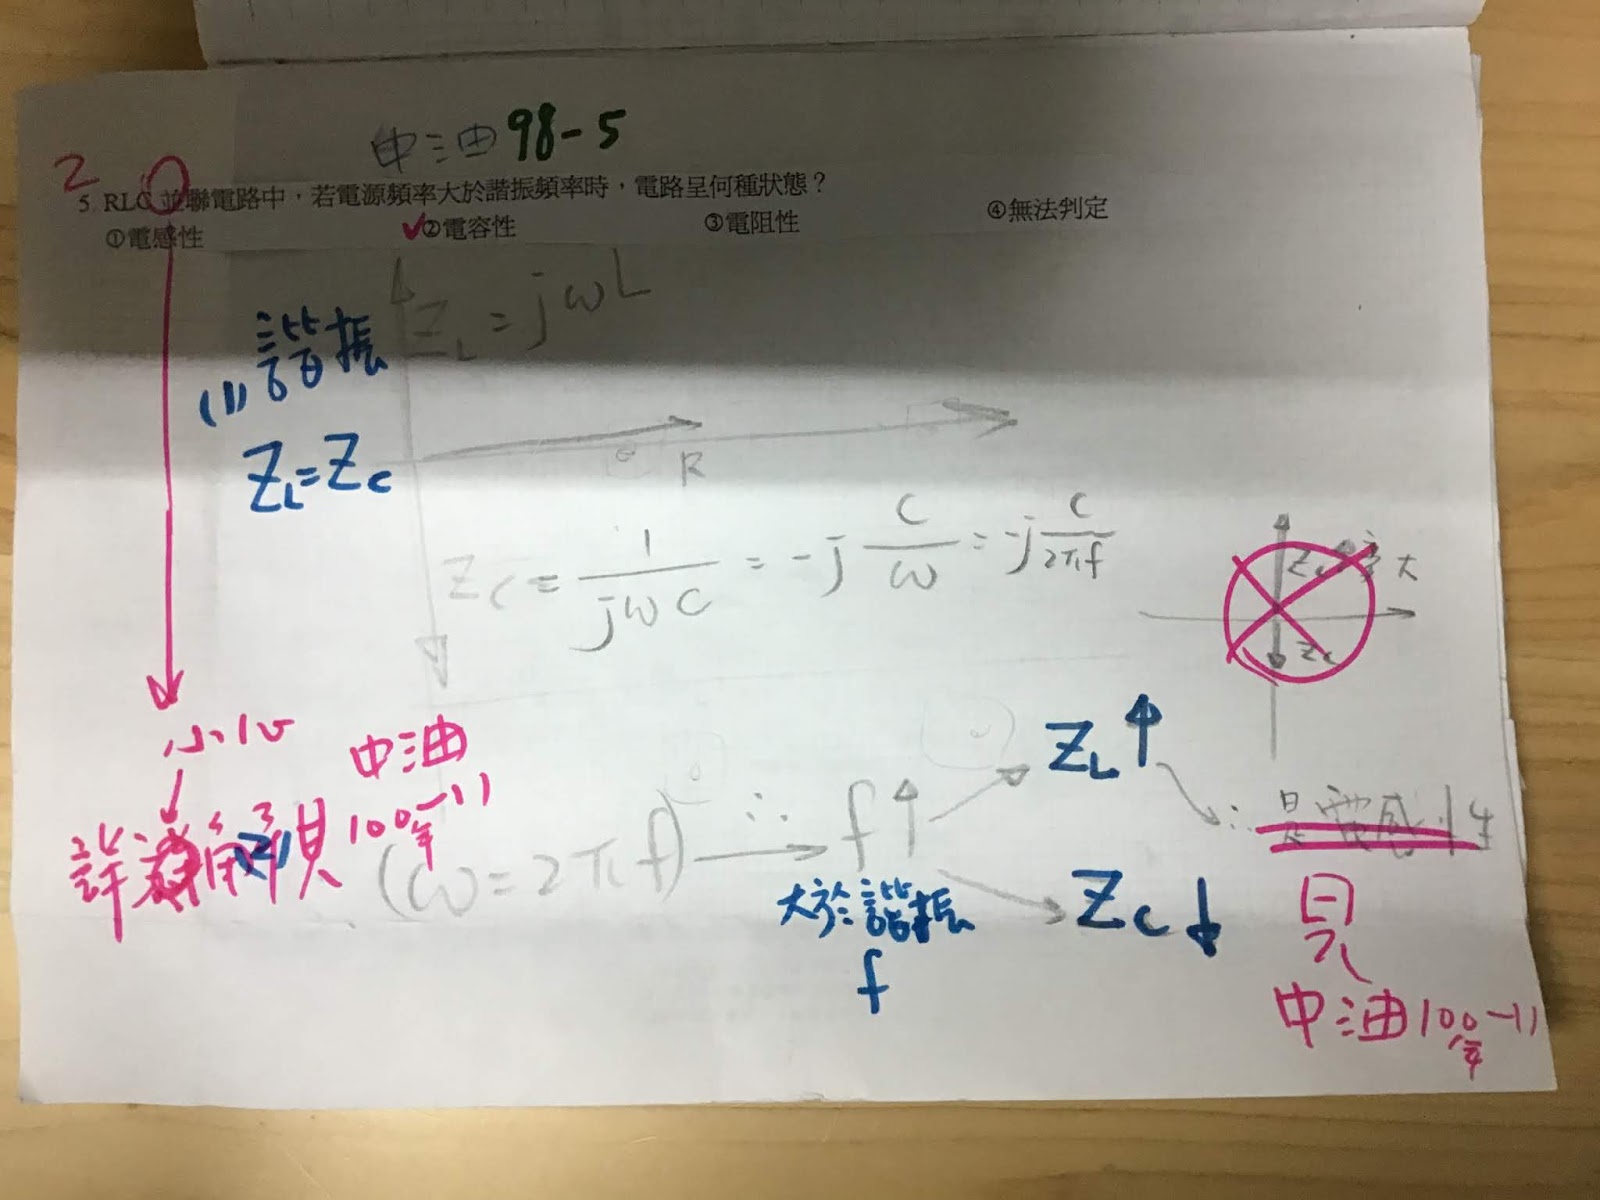 中油98-5
2
5. RLC並聯電路中，若電源頻率大於諧振頻率時，電路呈何種狀態？
①電感性 ✓②電容性 ③電阻性 ④無法判定
Z_L = jωL
(1)諧振
Z_L=Z_C
R
Z_C = 1/(jωC) = -j C/ω = -j C/(2πf)
大
Z_C
小心
中油
100年-11
詳 解 見
(2)
(ω=2πf) → ∴ f↑
大於諧振
f
Z_L↑
Z_C↓
∴是電感性
見
中油100年-11